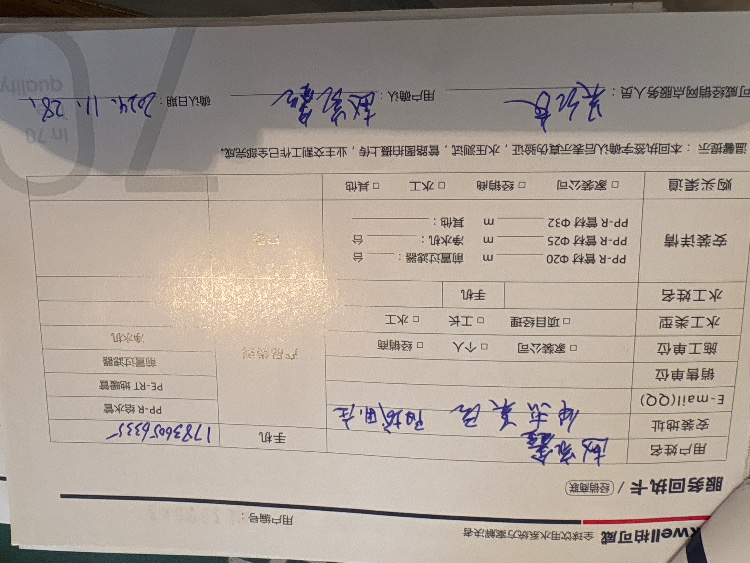 kwell柏可威 全球饮用水系统方案解决者
用户编号：
服务回执卡 / 经销商联
用户姓名
手机 17836056335
安装地址
E-mail(QQ)
销售单位
施工单位 □ 家装公司 □ 个人 □ 经销商
水工类型 □ 项目经理 □ 工长 □ 水工
水工姓名 手机
产品类型
PP-R 给水管
PE-RT 地暖管
前置过滤器
净水机
安装详情
PP-R 管材 Φ20 m 前置过滤器： 台
PP-R 管材 Φ25 m 净水机： 台
PP-R 管材 Φ32 m 其他：
购买渠道 □ 家装公司 □ 经销商 □ 水工 □ 其他
温馨提示：本回执签字确认后表示真伪验证，水压测试，管路图拍摄上传，业主交割工作已全部完成。
可威经销网点服务人员： 用户确认： 确认日期：2024.11.28.
quality
in 70
70